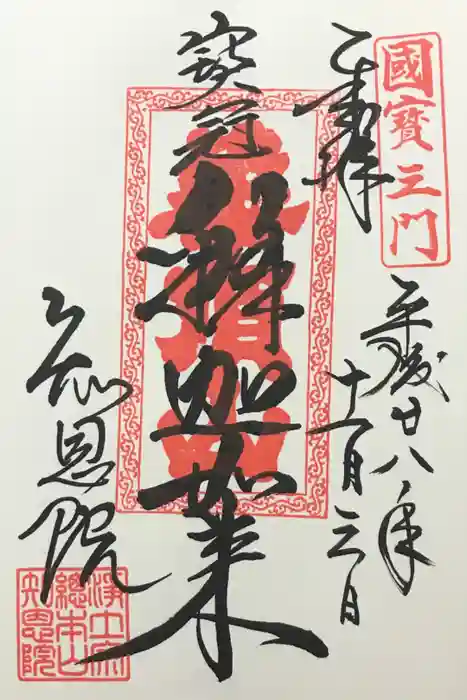 國寶三門
奉拝
平成廿八年
十一月三日
寶冠
釋迦如来
知恩院
浄土宗
總本山
知恩院